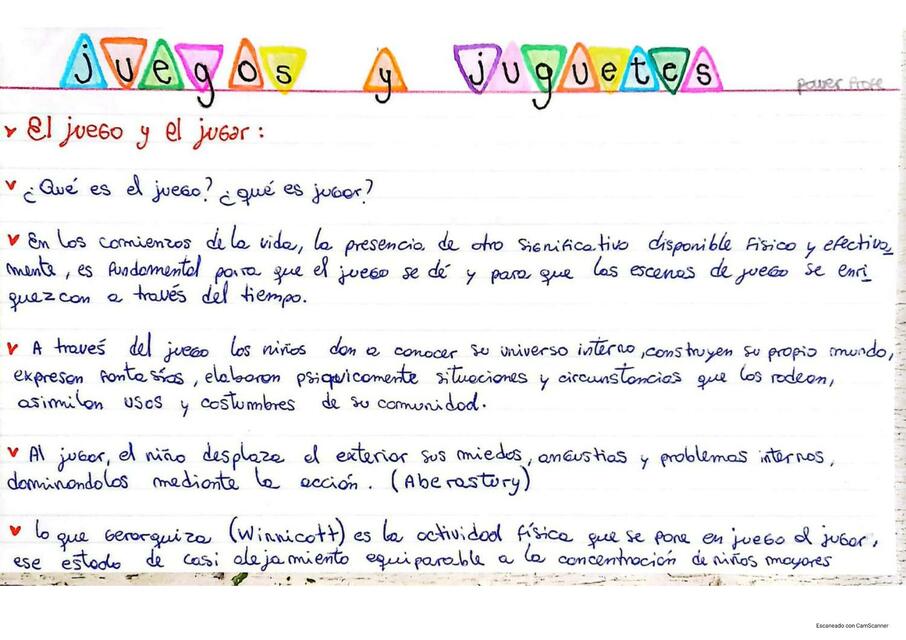 juegos y juguetes
power Profe
El juego y el jugar:
¿Qué es el juego? ¿qué es jugar?
En los comienzos de la vida, la presencia de otro significativo disponible físico y efectiva
mente, es fundamental para que el juego se dé y para que las escenas de juego se enri
quezcan a través del tiempo.
A través del juego los niños dan a conocer su universo interno, construyen su propio mundo,
expresan fantasías, elaboran psíquicamente situaciones y circunstancias que los rodean,
asimilan usos y costumbres de su comunidad.
Al jugar, el niño desplaza al exterior sus miedos, angustias y problemas internos,
dominandolos mediante la acción. (Aberastury)
lo que gerarquiza (Winnicott) es la actividad física que se pone en juego al jugar,
ese estado de casi alejamiento equiparable a la concentración de niños mayores
Escaneado con CamScanner